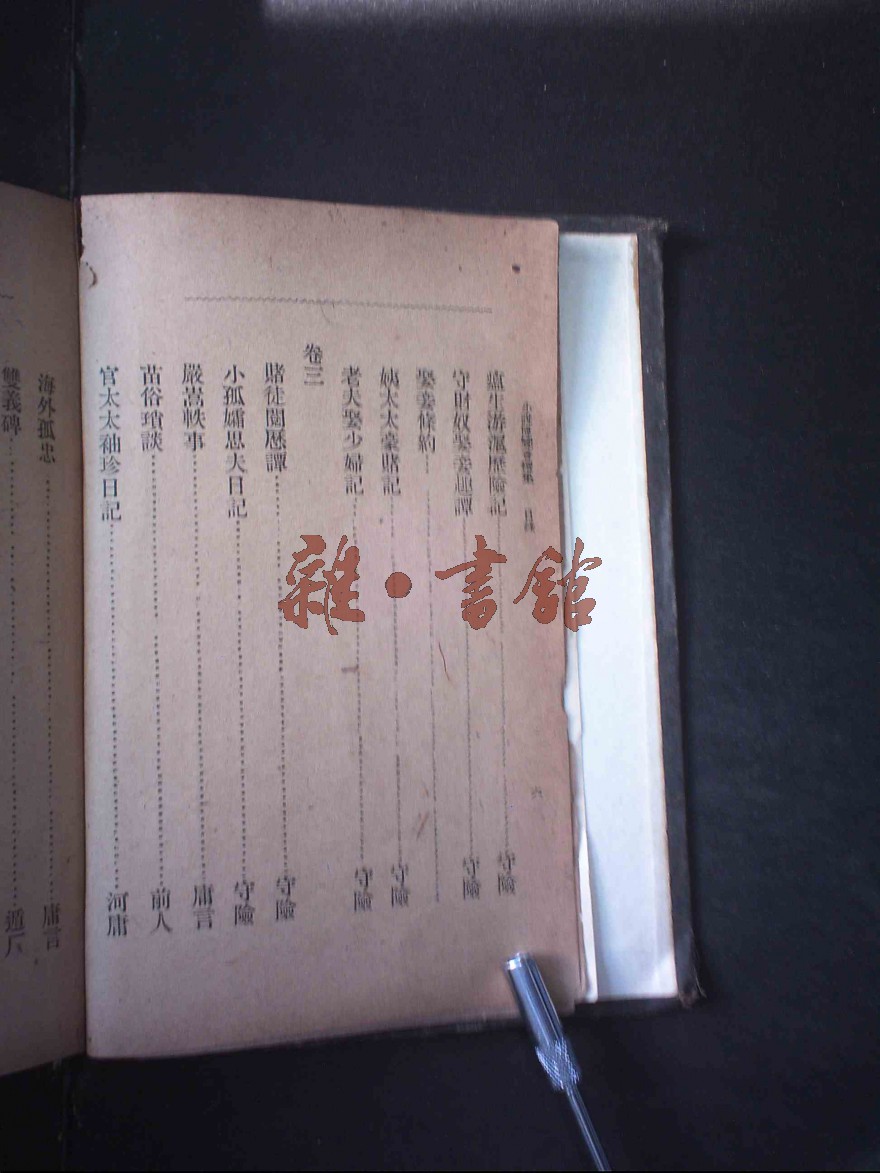 目錄
六
瘟生游滬歷險記 守險
守財奴娶妾趣譚 守險
娶妾條約
姨太太豪賭記 守險
老夫娶少婦記 守險
卷三
賭徒閱歷譚 守險
小孤孀思夫日記 守險
嚴嵩軼事 庸言
苗俗瑣談 前人
官太太袖珍日記 河庸
海外孤忠 庸言
雙義碑 遁
雜·書館